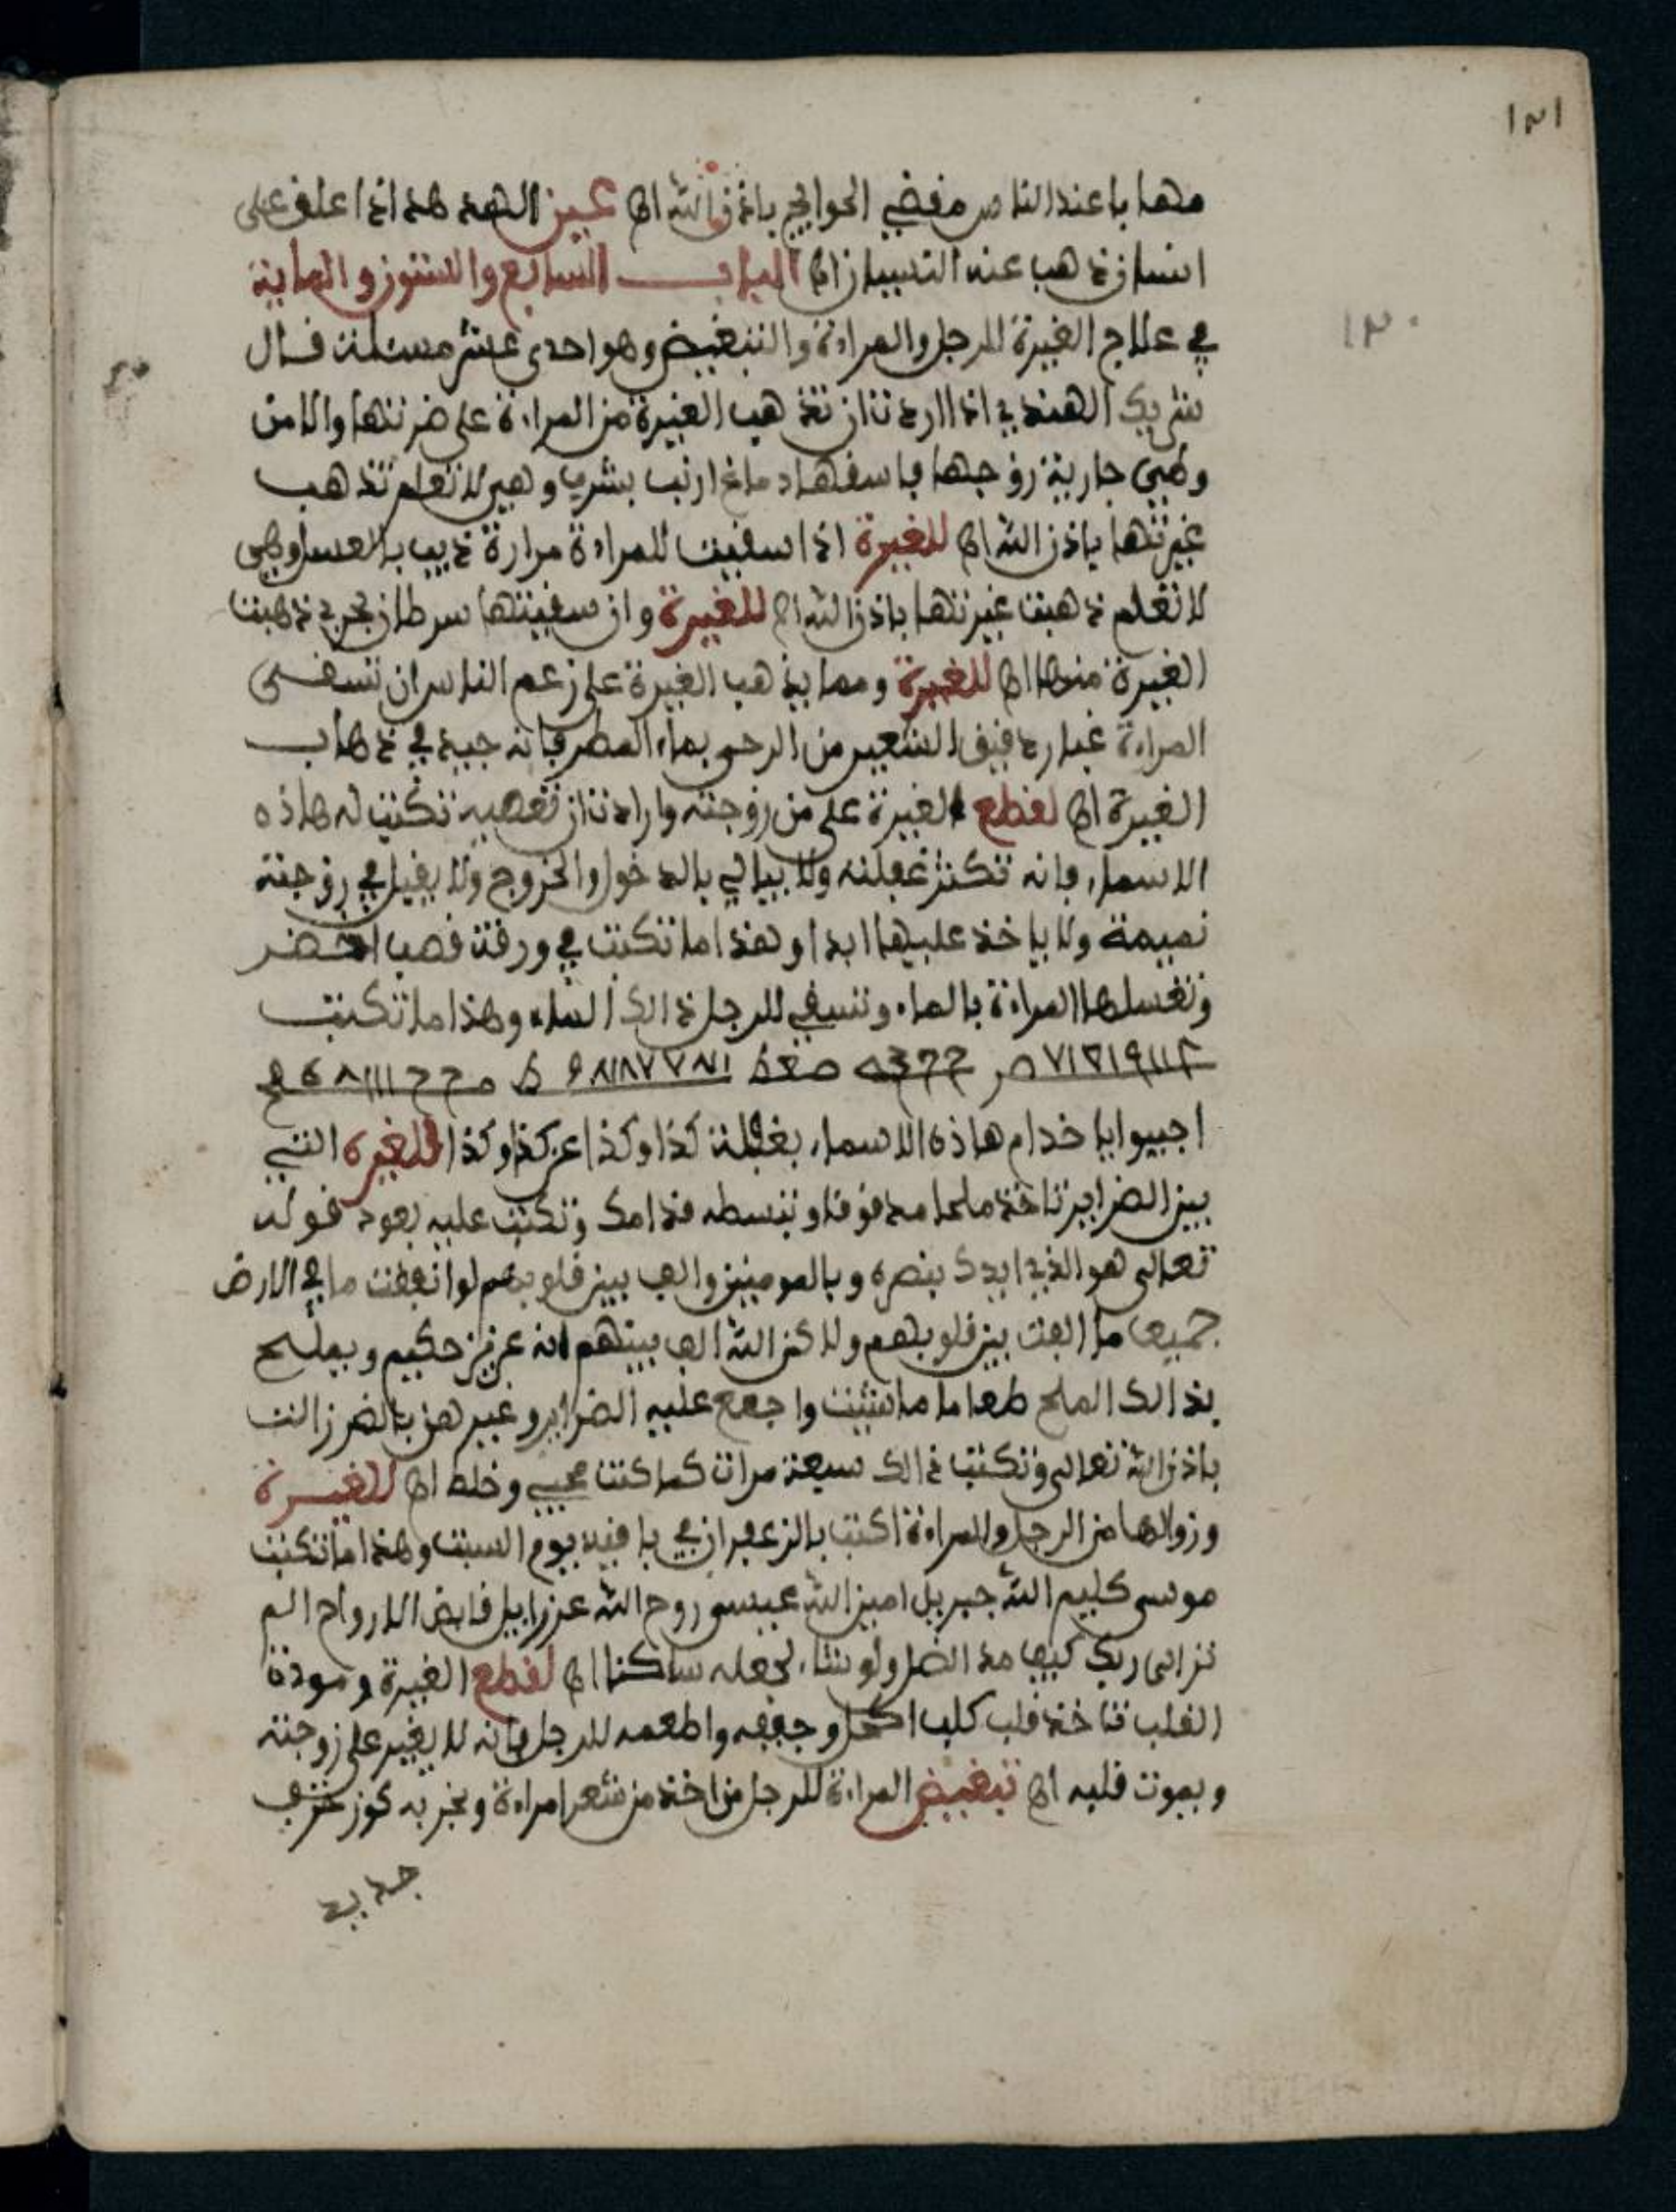 ١٣١
مهابا عند الناس مفضي الحوايج باذن الله اه عين الهدهد اذا علق على
انسان ذهب عنه النسيان اه الباب السابع والستون والماية
١٣٠
في علاج الغيرة للرجل والمراة والتبغيض وهو احدى عشر مسئلة قال
شريك الهندي اذا اردت ان تذهب الغيرة من المراة على ضرتها والامن
وطيى جارية زوجها فاسقها دماغ ارنب بشرب وهي لا تعلم تذهب
غيرتها باذن الله اه للغيرة اذا سقيت للمراة مرارة ذيب بالعسل وهي
لا تعلم ذهبت غيرتها باذن الله اه للغيرة وان سقيتها سرطان بحري ذهبت
الغيرة منها اه للغيرة ومما يذهب الغيرة على زعم الناس ان تسقى
المراة غبار دقيق الشعير من الرحى بماء المطر فانه جيد في ذهاب
الغيرة اه لقطع الغيرة على من زوجته وارادت ان تعصيه تكتب له هاذه
الاسماء فانه تكثر غفلته ولا يبالي بالدخول والخروج ولا يقبل في زوجته
نميمة ولا ياخذ عليها ابدا وهذا ما تكتب في ورقة قصب اخضر
وتغسلها المراة بالماء وتسقي للرجل ذالك الماء وهذا ما تكتب
اجيبوا يا خدام هاذه الاسماء بغفلة كذا وكذا عن كذا وكذا للغيرة التي
بين الضراير تاخذ ملحا مدقوقا وتبسطه قدامك وتكتب عليه بعود قوله
تعالى هو الذي ايدك بنصره وبالمومنين والف بين قلوبهم لو انفقت ما في الارض
جميعا ما الفت بين قلوبهم ولاكن الله الف بينهم انه عزيز حكيم ويملح
بذالك الملح طعاما ما شيت واجمع عليه الضراير وغيرهن بالضر زالت
باذن الله تعالى وتكتب ذالك سبعة مرات كما كتب محيي وخلط اه للغيرة
وزوالها من الرجل والمراة اكتب بالزعفران في يوم السبت وهذا ما تكتب
موسى كليم الله جبريل امين الله عيسى روح الله عزرايل قابض الارواح الم
تر الى ربك كيف مد الظل ولو شاء لجعله ساكنا اه لقطع الغيرة ومودة
القلب تاخذ قلب كلب اكحل وجففه واطعمه للرجل فانه لا يغير على زوجته
ويموت قلبه اه تبغيض المراة للرجل من اخذ من شعر امراة وبخر به كوز خزف
جديد